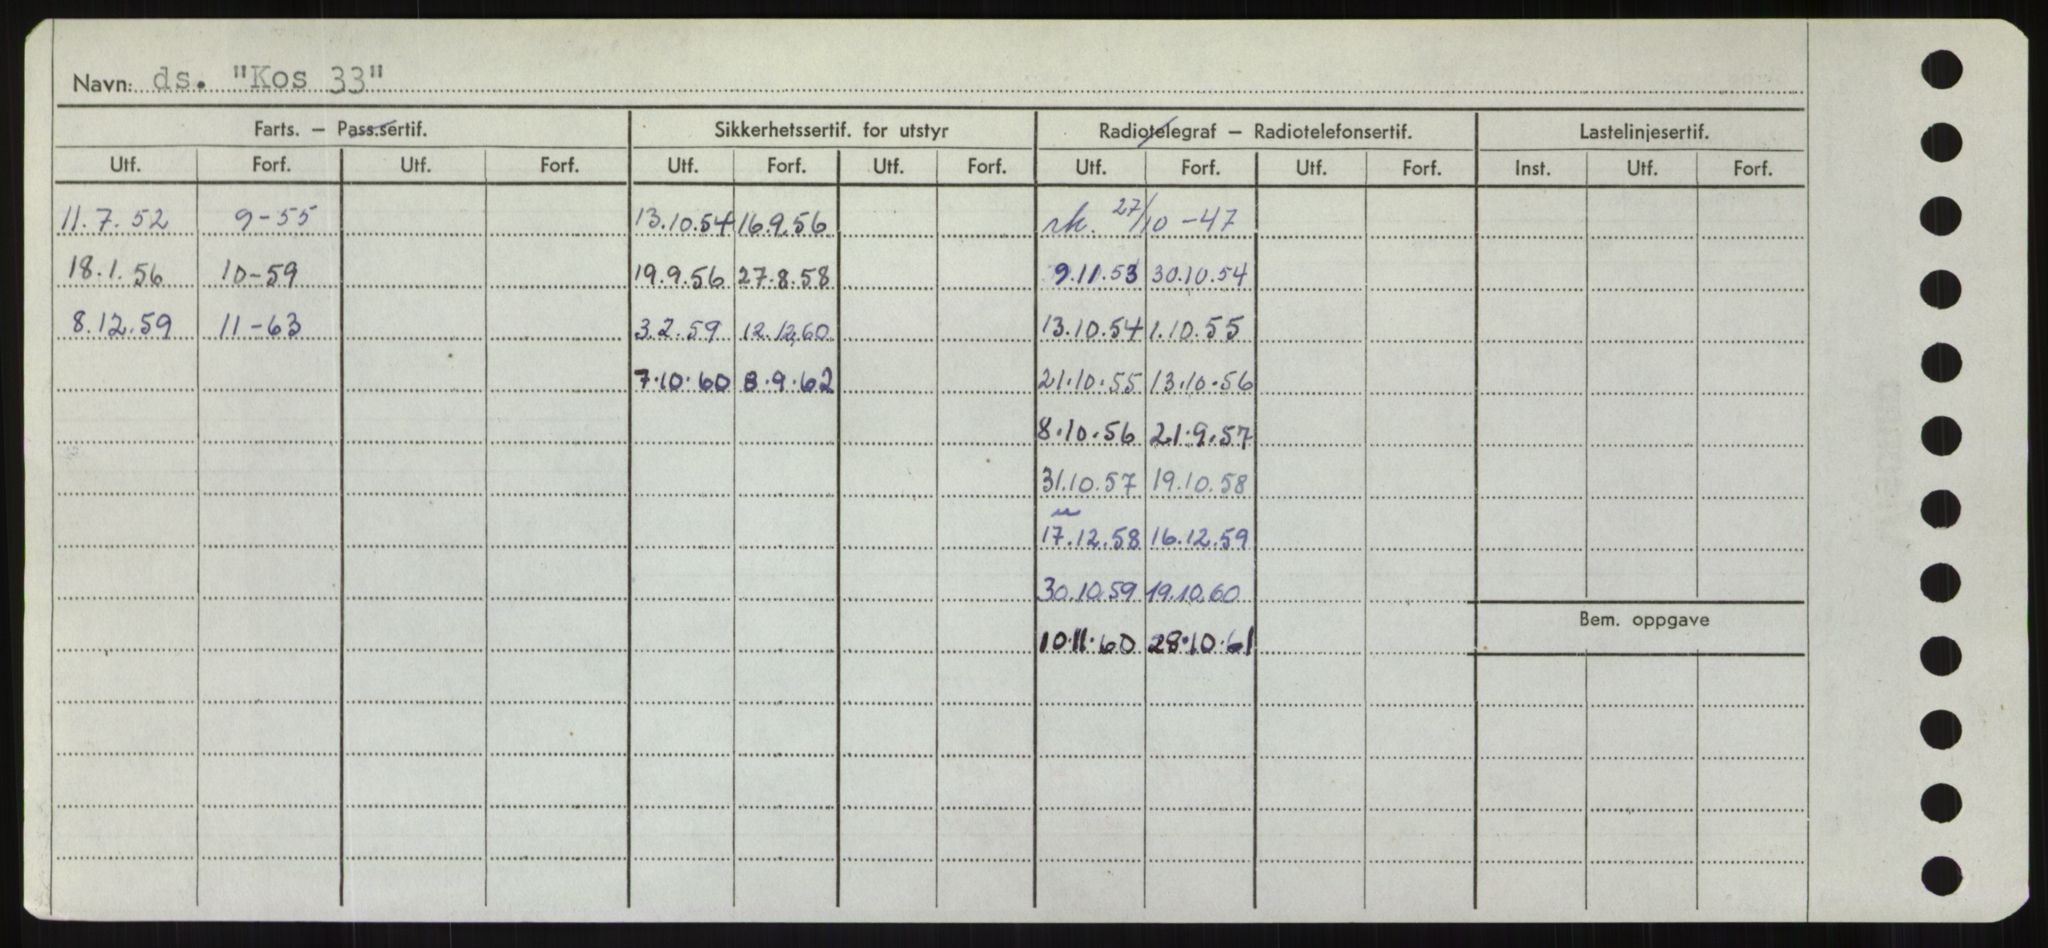 Navn: ds. "Kos 33"
Farts. – Pass.sertif. Sikkerhetssertif. for utstyr Radiotelegraf – Radiotelefonsertif. Lastelinjesertif.
Utf. Forf. Utf. Forf. Utf. Forf. Utf. Forf. Utf. Forf. Utf. Forf. Inst. Utf. Forf.
11.7.52 9-55 13.10.54 16.9.56 rk. 27/10 -47
18.1.56 10-59 19.9.56 27.8.58 9.11.53 30.10.54
8.12.59 11-63 3.2.59 12.12.60 13.10.54 1.10.55
7.10.60 8.9.62 21.10.55 13.10.56
8.10.56 21.9.57
31.10.57 19.10.58
17.12.58 16.12.59
30.10.59 19.10.60
Bem. oppgave
10.11.60 28.10.61